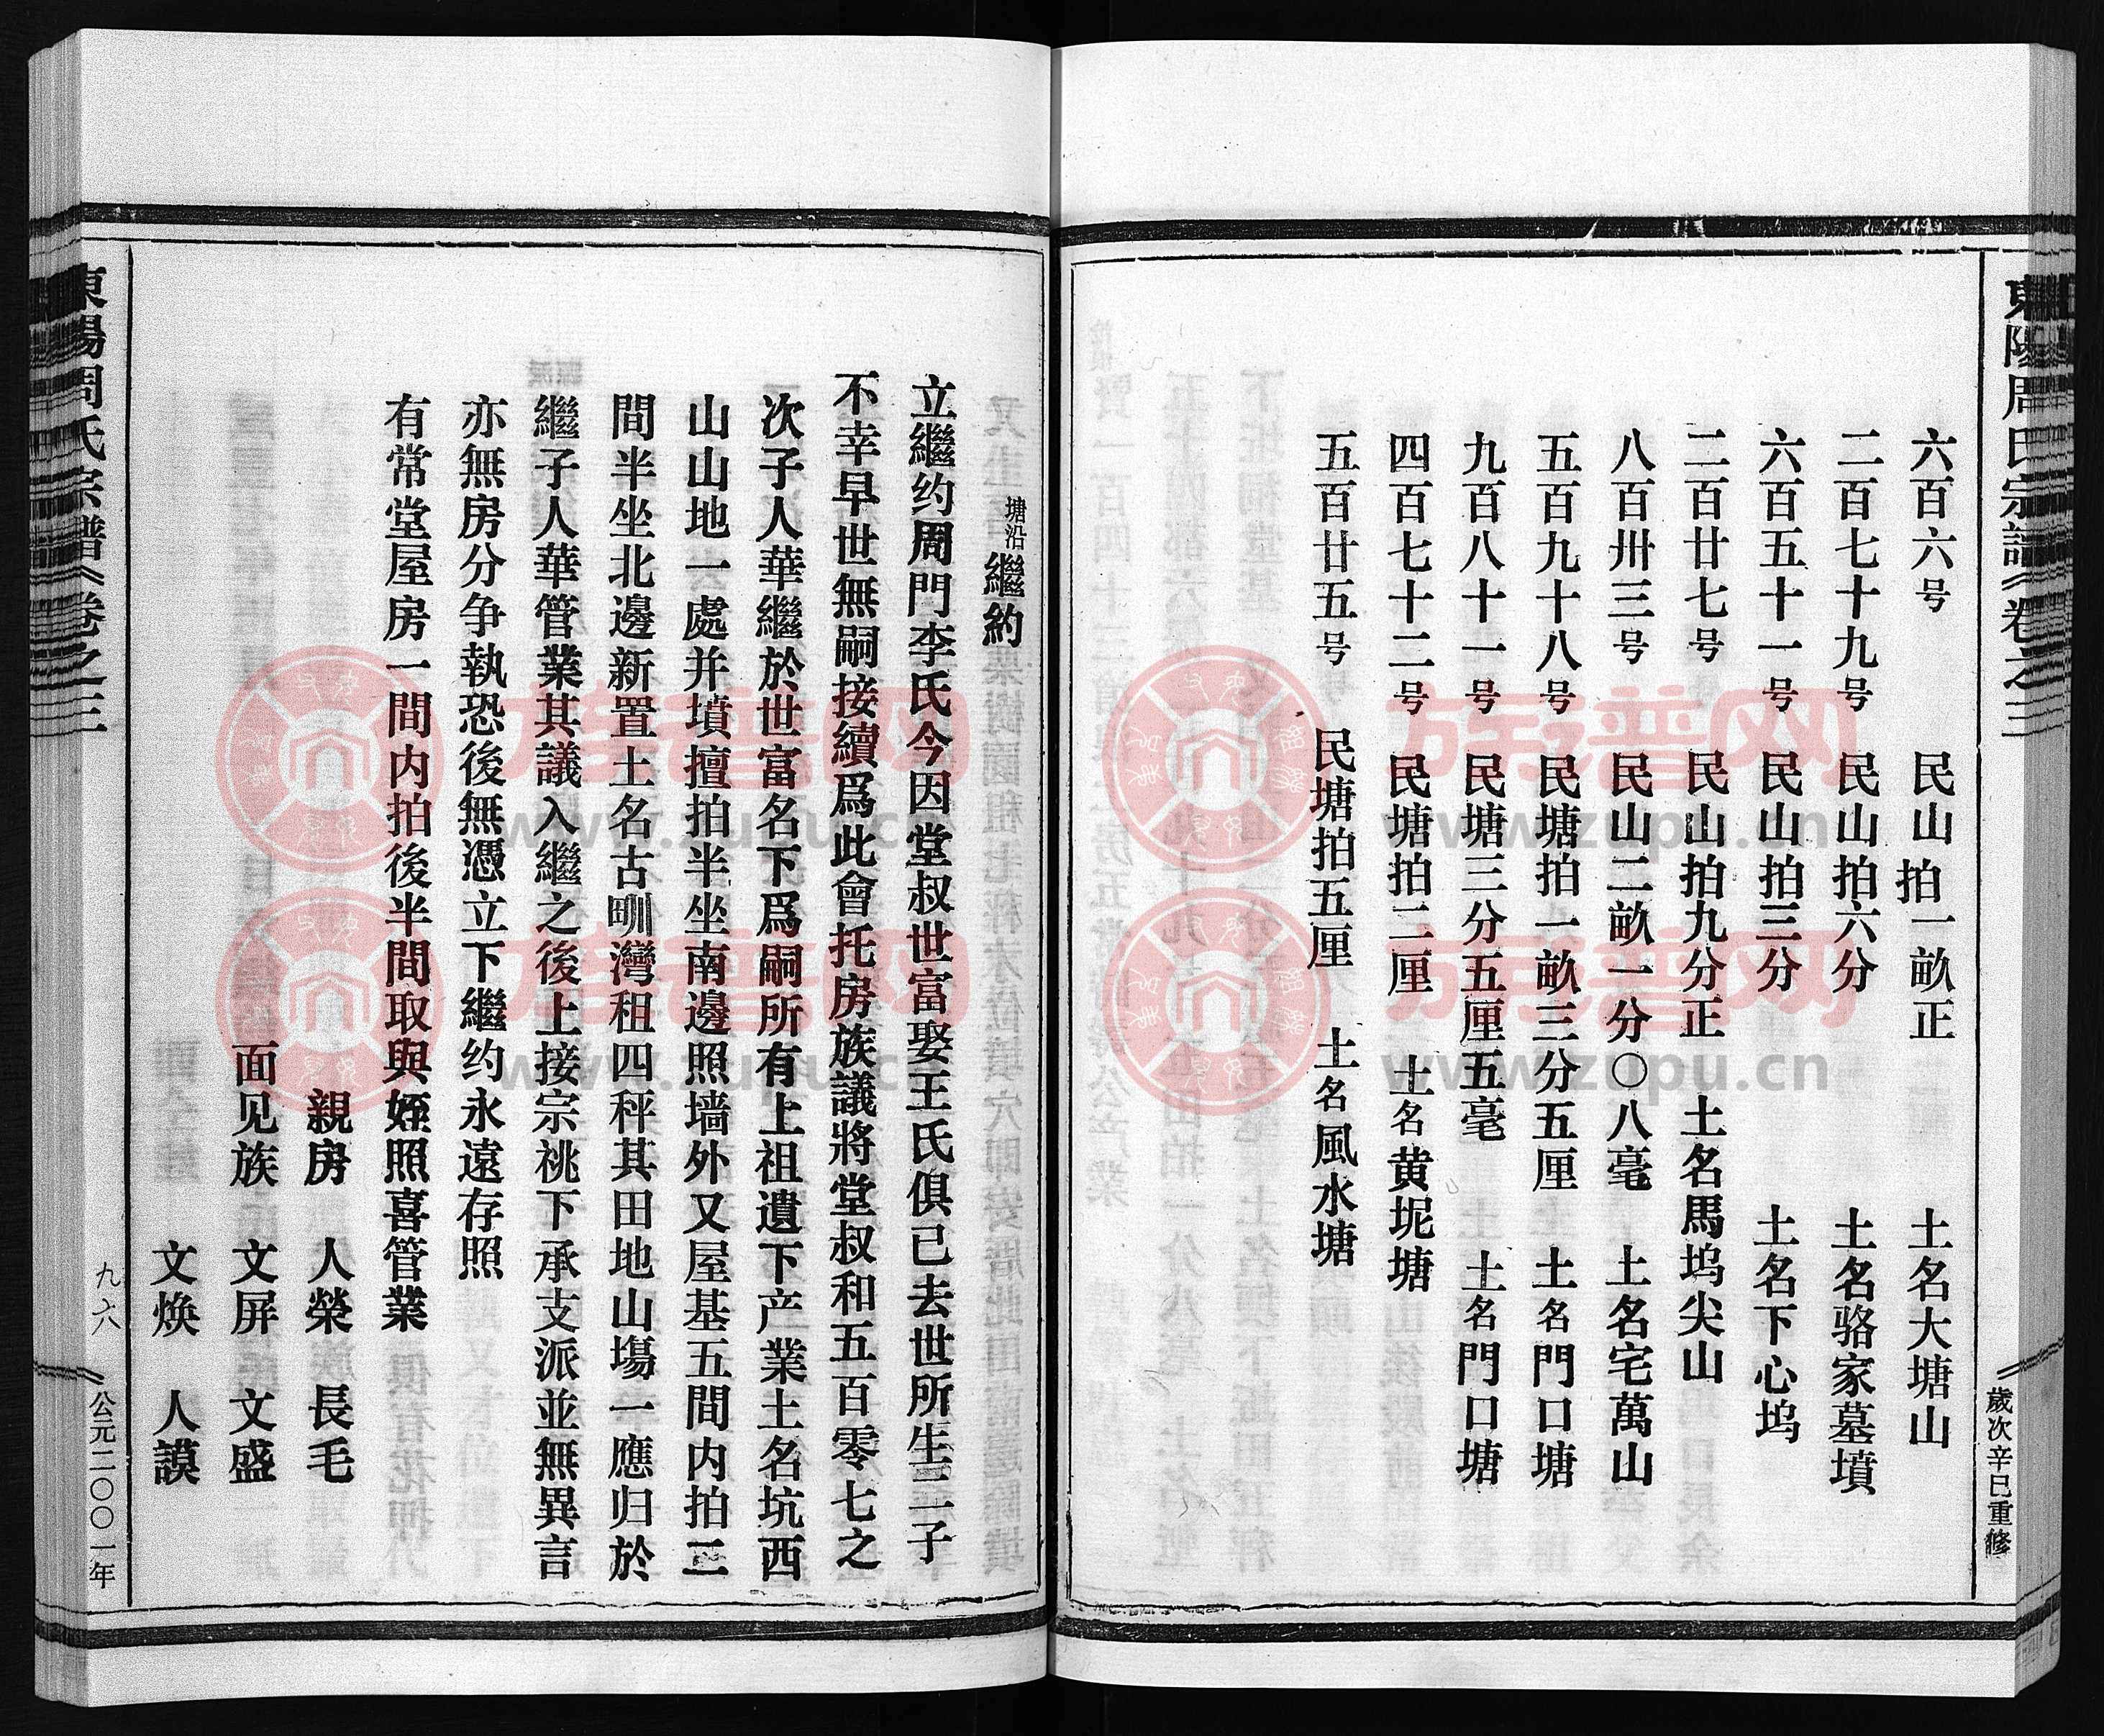 東陽周氏宗譜 卷之三
歲次辛巳重修
六百六号 民山拍一畝正 土名大塘山
二百七十九号 民山拍六分 土名骆家墓墳
六百五十一号 民山拍三分 土名下心坞
二百廿七号 民山拍九分正 土名馬坞尖山
八百卅三号 民山二畝一分〇八毫 土名宅萬山
五百九十八号 民塘拍一畝三分五厘 土名門口塘
九百八十一号 民塘三分五厘五毫 土名門口塘
四百七十二号 民塘拍二厘 土名黄坭塘
五百廿五号 民塘拍五厘 土名風水塘
塘沿繼約
立繼约周門李氏今因堂叔世富娶王氏俱已去世所生二子
不幸早世無嗣接續爲此會托房族議將堂叔和五百零七之
次子人華繼於世富名下爲嗣所有上祖遺下产業土名坑西
山山地一處并墳擅拍半坐南邊照墙外又屋基五間内拍三
間半坐北邊新置土名古甽灣租四秤其田地山塲一應归於
繼子人華管業其議入繼之後上接宗祧下承支派並無異言
亦無房分争執恐後無憑立下繼约永遠存照
有常堂屋房一間内拍後半間取與姪照喜管業
親房 人榮 長毛
面见族 文屏 文盛
文焕 人謨
東陽周氏宗譜 卷之三
九六
公元二〇〇一年
族谱网
www.zupu.cn
族谱网
www.zupu.cn
族谱网
www.zupu.cn
族谱网
www.zupu.cn